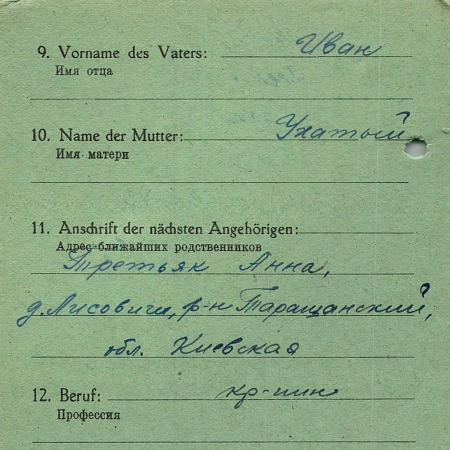 9. Vorname des Vaters: Иван
Имя отца
10. Name der Mutter: Ухатый
Имя матери
11. Anschrift der nächsten Angehörigen:
Адрес ближайших родственников
Третьяк Анна,
д. Лисовичи, р-н Таращанский,
обл. Киевская
12. Beruf: кр-нин
Профессия